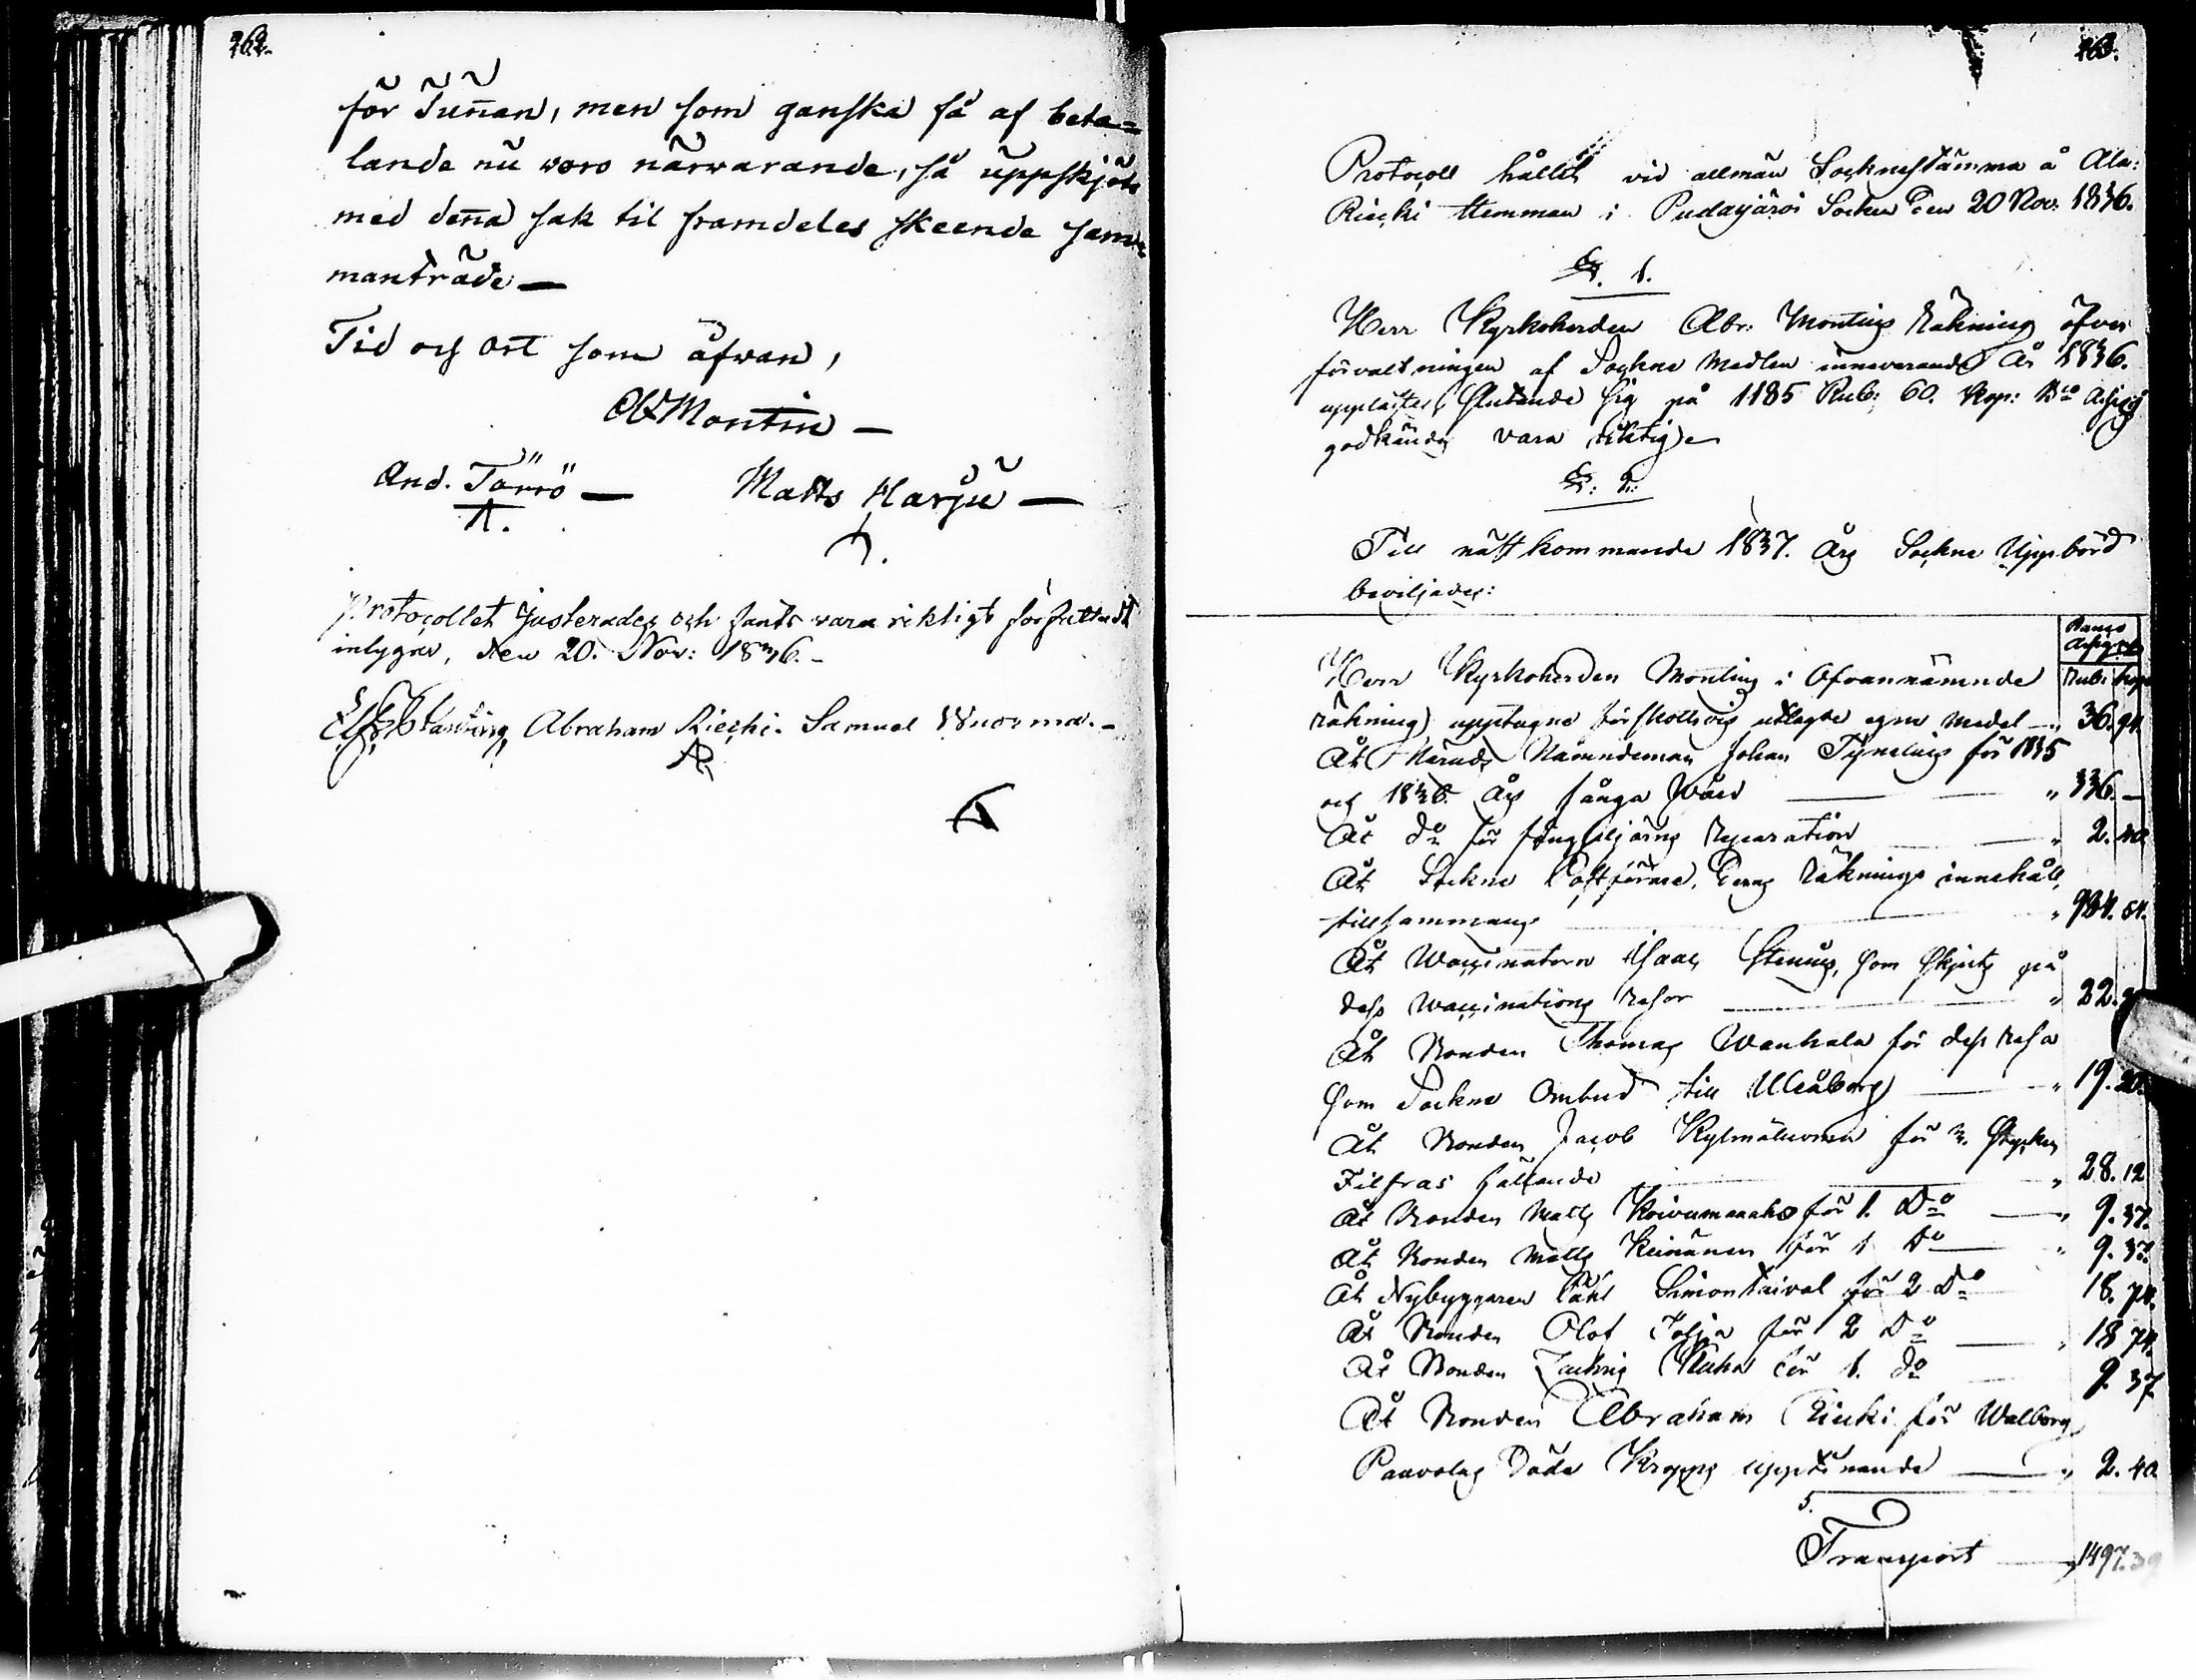 262.
för Tun̄an, men som ganska få af beta=
lande nu woro närwarande, så uppskjöts
med den̄a sak til framdeles skeende sam=
manträde —
Tid och ort som åfwan,
Montin —
And. Törrö — Matts Harju —
Protocollet justerades och fants vara riktigt författadt
intygar, den 20. Nov: 1836. -
Abraham Riecki. Samuel Wuorma. -
263.
Protocoll hållit vid allmän Socknestämma å Ala:
Riecki Hemman i Pudasjärvi Socken Den 20 Nov: 1836.
§. 1.
Herr Kyrkoherden Abr: Montins Räkning öfver
förvaltningen af Sockne Medlen innevarande År 1836.
upplästes, slutande sig på 1185 Rub: 60. Kop: B:co Assig
godkändes vara riktig
§. 2:
Till nästkommande 1837. Års Sockne Uppbörd
beviljades:
Banco
Assign:
Rub: Kop:
Herr Kyrkoherden Montins i Ofvannämnde
räkning, upptagne förskottsvis utlagde egne Medel — „ 36. 94.
Åt Härads Nämndeman Johan Tynelius för 1835
och 1836. Års fånga Vård — „ 336. —
Åt d:o för fång Reparation „ 2. 40
Åt Sockne Postförare, Deras Räknings innehåll,
tillsammans „ 984. 54.
Åt Waccinatorn Isaac Stenius, som skjuts på
dess Waccinations resor „ 22.
Åt Bonden Thomas Wanhala för dess resa
som Sockne Ombud till Uleåborg „ 19. 20.
Åt Bonden Jacob Kylmäluoma för 3. Stycken
Filfras fällande „ 28. 12
Åt Bonden Matts Koivumaaho för 1. D:o — „ 9. 37.
Åt Bonden Matts Keinänen för 1 D:o — „ 9. 37.
Åt Nybyggaren Påhl Simontaival för 2 D:o 18. 74.
Åt Bonden Olof Jolja för 2 D:o — „ 18 74.
Åt Bonden Zachris Kuha för 1. d:o 9. 37
Åt Bonden Abraham Riecki för Walborg
Paavolas Döda Kropps upptinande — „ 2. 40
Transport — „ 1497. 39